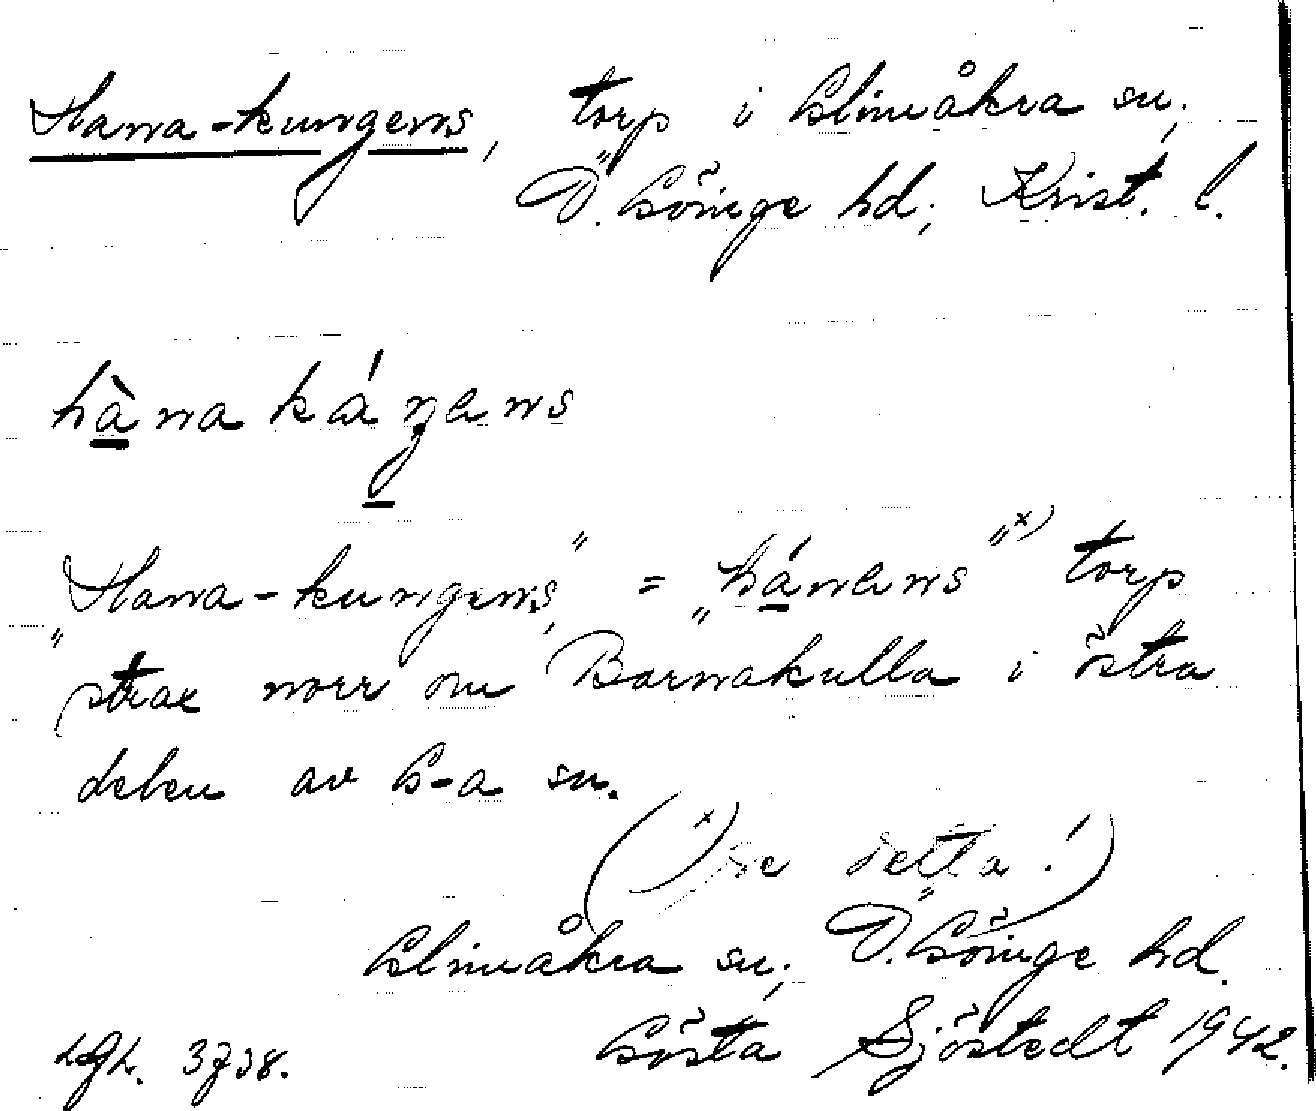 Hanna-kungens, torp i Glimåkra sn,
Ö. Göinge hd, Krist. l.
hànakáŋans
"Hanna-kungens," = "hánans" x) torp
strax norr om Barnakulla i östra
delen av G-a sn.
(x) se detta!)
Glimåkra sn, Ö. Göinge hd.
Lgh. 3738. Gösta Sjöstedt 1942.